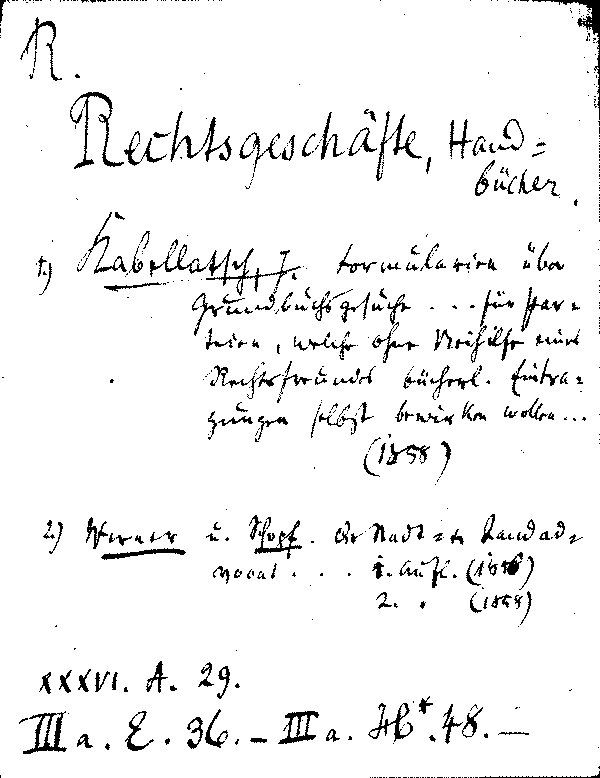 R.
Rechtsgeschäfte, Hand=
bücher.
1.) Kabellatsch, J. Formularien über
Grundbuchsgesuche ... für Par=
teien, welche ohne Beihilfe eines
Rechtsfreundes bücherl. Eintra=
gungen selbst bewirken wollen...
(1858)
2.) Werner u. Schopf. Der Stadt= u. Landad=
vocat ... 1. Aufl. (1856)
2. „ (1858)
XXXVI. A. 29.
III a. E. 36. – III a. Hb*. 48. –